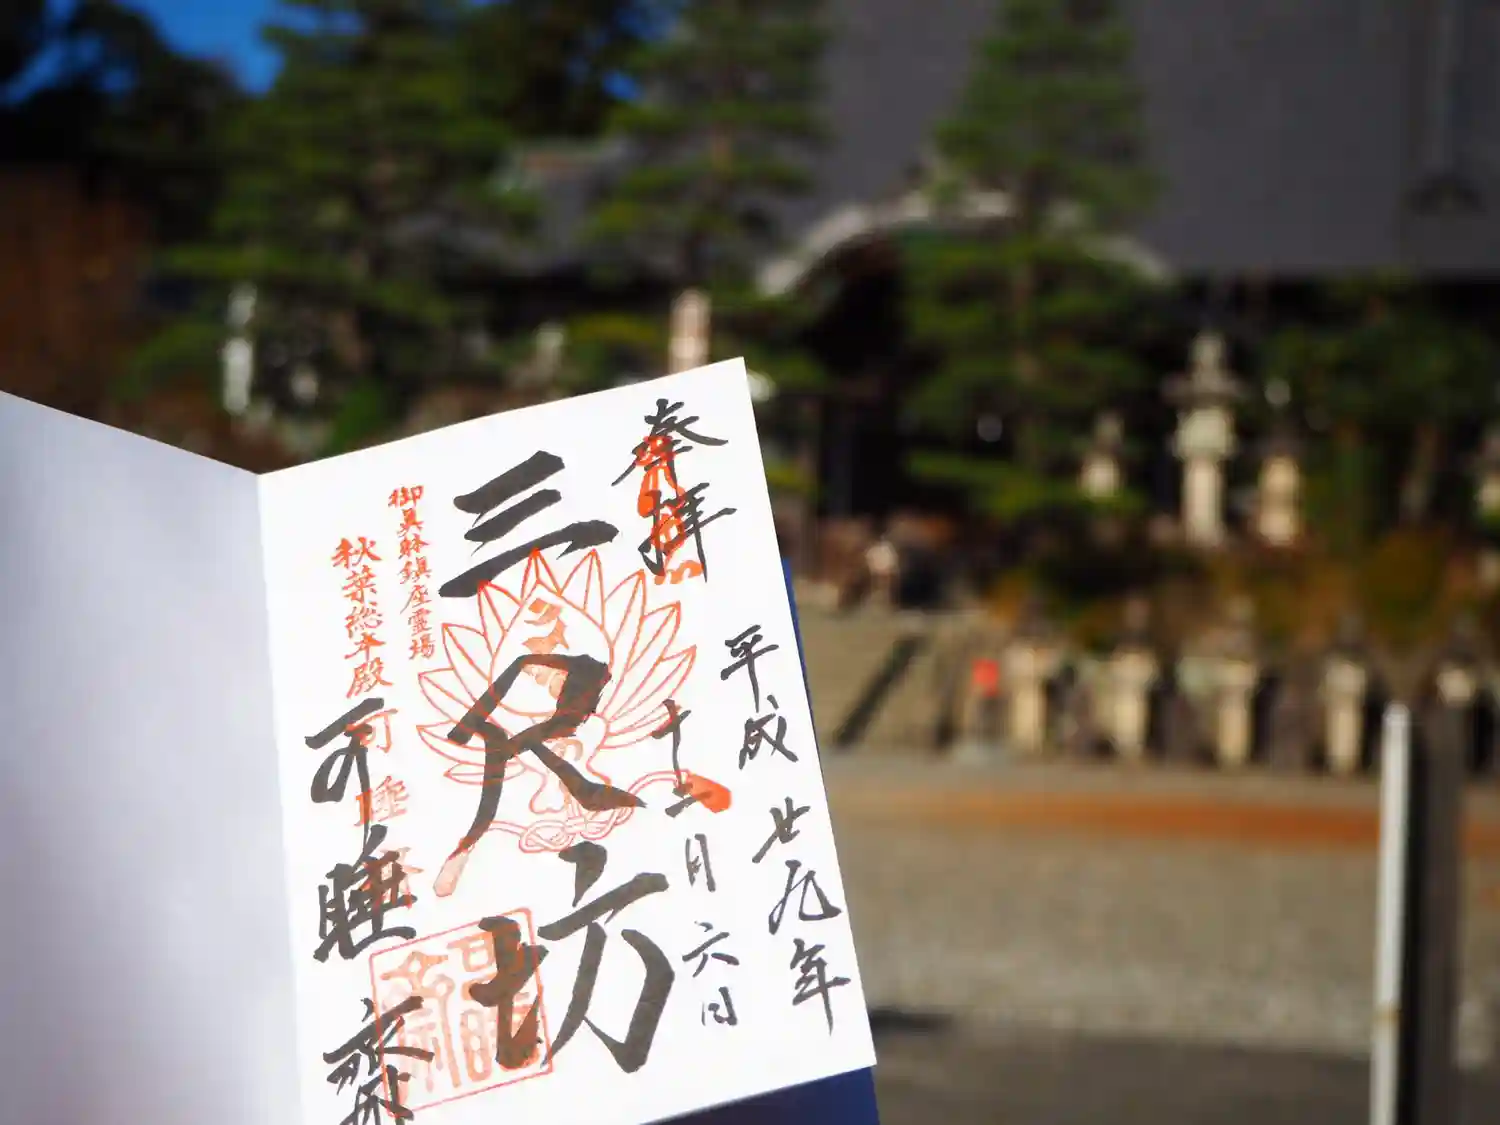 奉拝
平成廿九年
十二月六日
三尺坊
御真躰鎮座霊場
秋葉総本殿
可睡
可睡斎